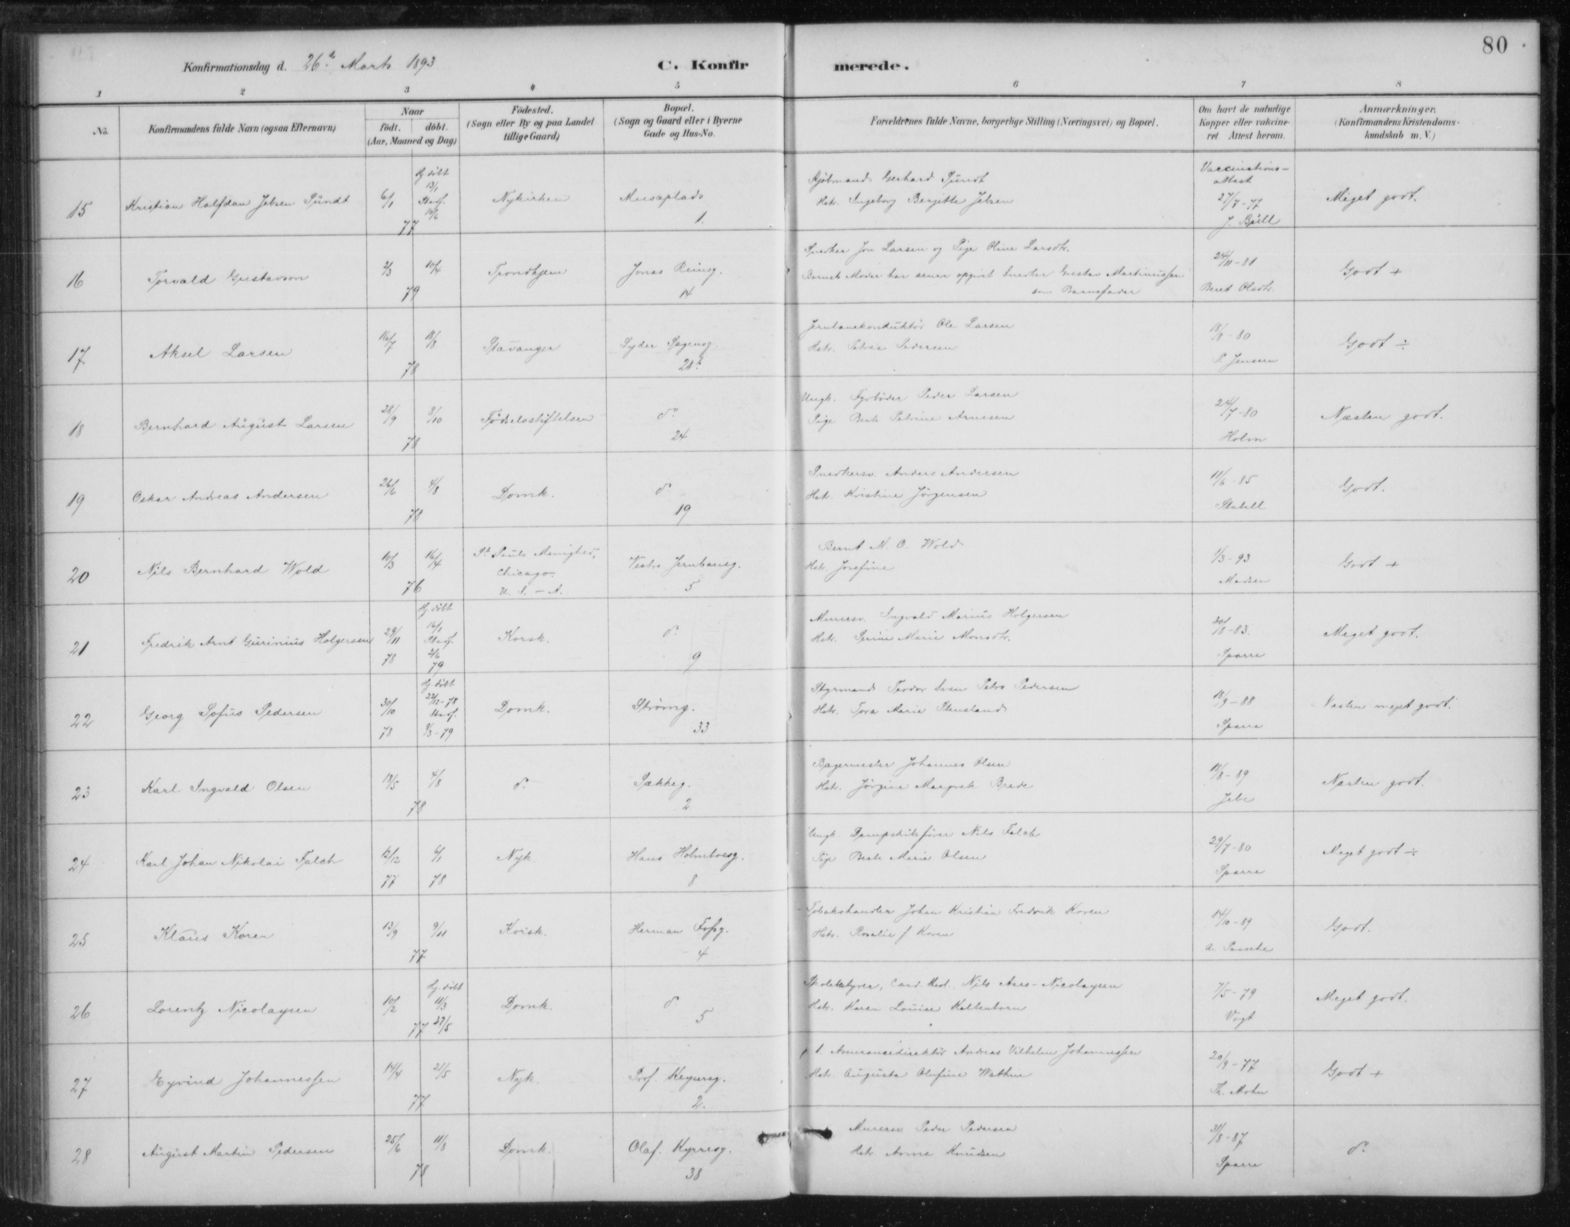 80
Konfirmationsdag d. 26de Marts 1893
C. Konfirmerede.
1 2 3 4 5 6 7 8
No.
Konfirmandens fulde Navn (ogsaa Efternavn)
Naar
født. døbt.
(Aar, Maaned og Dag)
Födested.
(Sogn eller By og paa Landet
tillige Gaard)
Bopæl.
(Sogn og Gaard eller i Byerne
Gade og Hus-No.
Forældrenes fulde Navne, borgerlige Stilling (Næringsvei) og Bopæl.
Om havt de naturlige
Kopper eller vaksine-
ret Attest herom.
Anmærkninger.
(Konfirmandens Kristendoms-
kundskab m. V.)
15 Kristian Halfdan Jebsen Sündt 6/1 77 Hj. døbt 13/1 Nykirken 1 Kjøbmand Gerhard Sündt
Hst. Ingeborg Bergitte Jebsen
Vaccinations-
attest
27/7-77
Meget godt.
16 Torvald Gustavson 79 Trondhjem Jonas Reinsg. 14
Snedker Jon Larsen og Pige Oline Larsdtr.
som Barnefader
24/11-81
Beret Olsdtr.
Godt +
17 Aksel Larsen 78 Stavanger 21b
Jernbanekonduktör Ole Larsen
Hst. Petrea Pedersen
80
P. Jensen
Godt ÷
18 Bernhard August Larsen 28/9 3/10 78 Födselsstiftelsen do 24
Ungk. Fyrböder Peder Larsen
24/7-80
Holm
Næsten godt.
19 Oskar Andreas Andersen 26/6 4/8 78 Domk. do 19
Snedkersv. Anders Andersen
Hst. Kristine Jörgensen
11/6-85
Stabell
Godt.
20 Nils Bernhard Wold 10/3 16/4 76 St. Pauls Menighed,
Chicago.
U. S. - A.
Vestre Jernbaneg. 5
Bernt M. O. Wold
Hst. Josefine
1/3-93
Madsen
Godt +
21 Fredrik Arnt Gurinius Holgersen 29/11 78 Hj. döbt 79 Korsk. do 9
Murersv. Ingvald Marius Holgersen
Hst. Gurine Marie Monsdtr.
83.
Sparre
Meget godt.
22 Georg Sofus Pedersen 30/10 78 Hj. döbt 22/12-78 2/3-79 Domk. Strömg. 33
Styrmand Teodor Sven Petro Pedersen
Hst. Tora Marie Stensland
88
Sparre
Næsten meget godt.
23 Karl Ingvald Olsen 13/5 4/8 78 do Sækkeg. 2
Bagermester Johannes Olsen
Hst. Jörgine Margrete Brede
89
Jebe
Næsten godt.
24 Karl Johan Nikolai Falch 12/12 77 6/1 78 Nyk. Hans Holmboesg. 8
Ungk. Dampskibsförer Nils Falch
Pige Berte Marie Olsen
29/7-80
Sparre
Meget godt ÷
25 Klaus Koren 13/9 9/11 77 Korsk. Herman Fossg. 4
Tobakshandler Johan Kristian Fredrik Koren
Hst. Rosalie f. Koren
89
Godt.
26 Lorentz Nicolaysen 10/2 Hj. döbt 11/3 77 27/5 Domk. do 5
Skolebestyrer, Cand. Med. Nils Aars-Nicolaysen
Hst. Karen Louise Kaltenborn
7/5-79
Vogt
Meget godt.
27 Eyvind Johannessen 14/4 21/5 77 Nyk. Prof. Keysersg. 2.
Assurancedirektör Andreas Vilhelm Johannessen
Hst. Augusta Olufine Wathne
20/9-77
Godt +
28 August Martin Pedersen 25/6 11/8 78 Domk. Olaf Kyrresg. 38
Murersv. Peder Pedersen
Hst. Anna Knudsen
31/8-87
Sparre
do